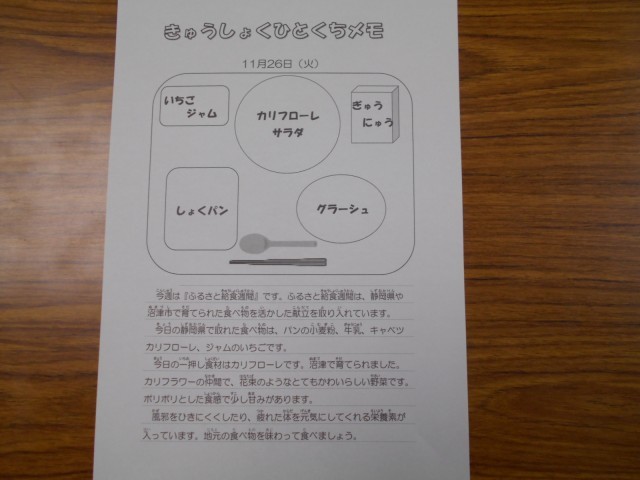 きゅうしょくひとくちメモ
11月26日（火）
いちご
ジャム
カリフローレ
サラダ
ぎゅう
にゅう
しょくパン
グラーシュ
今週は『ふるさと給食週間』です。ふるさと給食週間は、静岡県や
沼津市で育てられた食べ物を活かした献立を取り入れています。
今日の静岡県で取れた食べ物は、パンの小麦粉、牛乳、キャベツ
カリフローレ、ジャムのいちごです。
今日の一押し食材はカリフローレです。沼津で育てられました。
カリフラワーの仲間で、花束のようなとてもかわいらしい野菜です。
ポリポリとした食感で少し甘みがあります。
風邪をひきにくくしたり、疲れた体を元気にしてくれる栄養素が
入っています。地元の食べ物を味わって食べましょう。